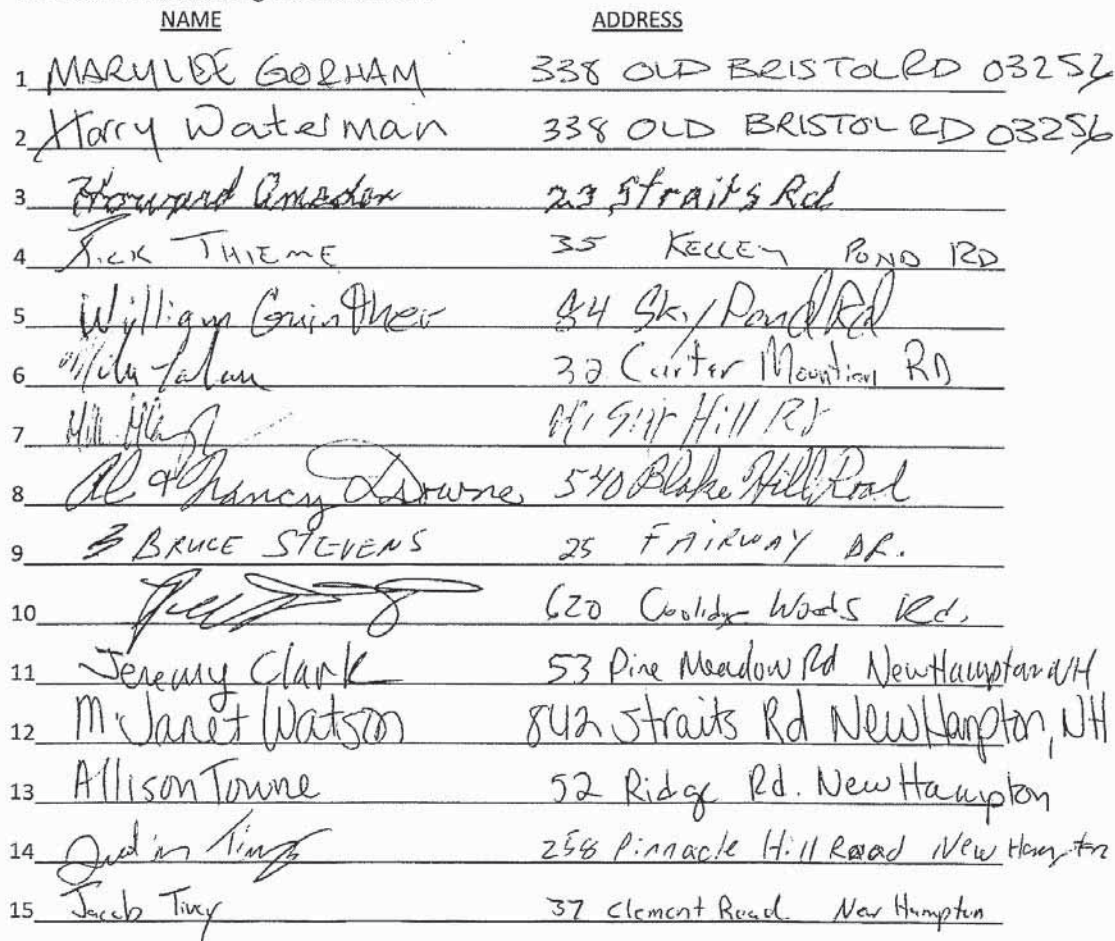 NAME ADDRESS
1 MARYLDE GORHAM 338 OLD BRISTOL RD 03256
2 Harry Waterman 338 OLD BRISTOL RD 03256
3 Howard 23 Straits Rd
4 RICK THIEME 35 KELLEY POND RD
5 William Guinther 84 Sky Pond Rd
6 32 Carter Mountian RD
7 Hill Rd
8 Al & Nancy 540 Blake Hill Road
9 BRUCE STEVENS 25 FAIRWAY DR.
10 620 Coolidge Woods Rd.
11 Jeremy Clark 53 Pine Meadow Rd New Hampton NH
12 M. Janet Watson 842 Straits Rd New Hampton, NH
13 Allison Towne 52 Ridge Rd. New Hampton
14 258 Pinnacle Hill Road New Hampton
15 Jacob 37 Clement Road New Hampton